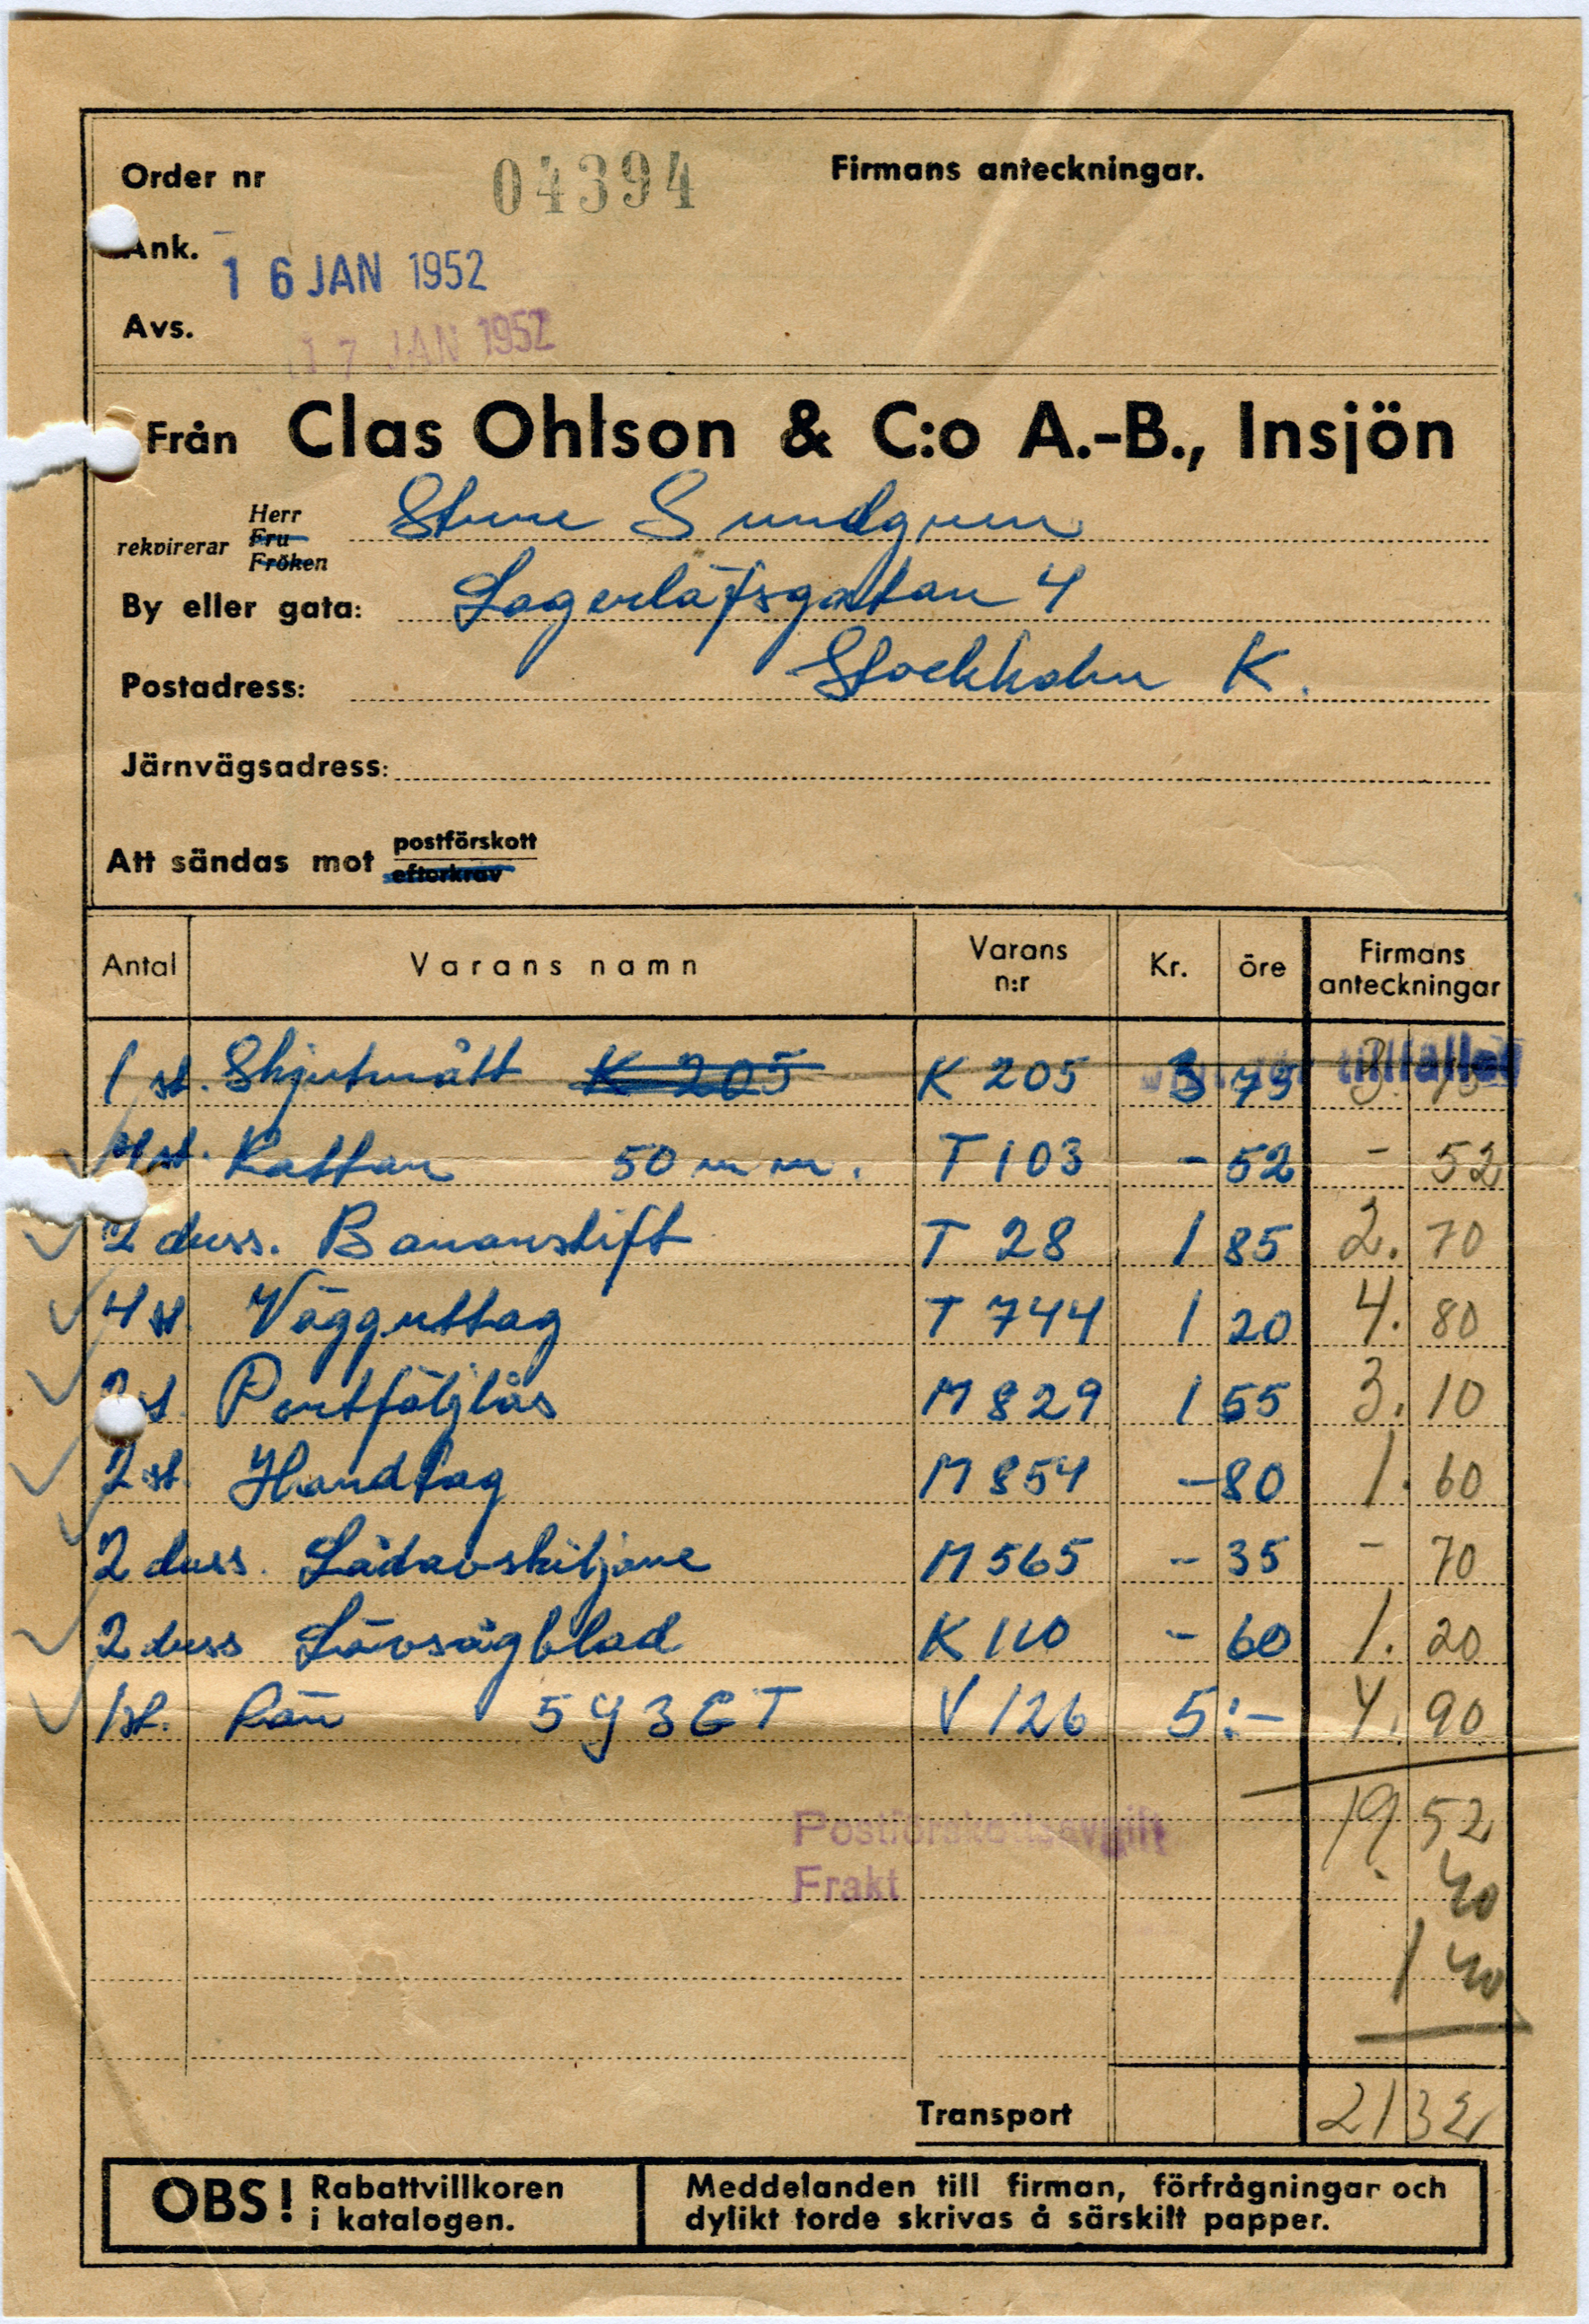 Order nr 04394 Firmans anteckningar.
Ank. 16 JAN 1952
Avs. 17 JAN 1952
Från Clas Ohlson & C:o A.-B., Insjön
rekvirerar Herr Fru Fröken Sture Sundgren
By eller gata: Lagerlöfsgatan 4
Postadress: Stockholm K.
Järnvägsadress:
Att sändas mot postförskott efterkrav
Antal Varans namn Varans n:r Kr. öre Firmans anteckningar
1 st. Skjutmått K 205 K 205 3 75 tillfället
st. Rattar 50 mm. T 103 - 52 - 52
2 duss. Bananstift T 28 1 85 2. 70
4 st. Vägguttag T 744 1 20 4. 80
2 st. Portföljlås M 829 1 55 3. 10
2 st. Handtag M 854 - 80 1. 60
2 duss. Lådavskiljare M 565 - 35 - 70
2 duss Lövsågblad K 110 - 60 1. 20
1 st. Rör 5Y3GT V 126 5:- 4. 90
19 52
Postförskottsavgift 40
Frakt
1 40
Transport 21 32
OBS! Rabattvillkoren i katalogen.
Meddelanden till firman, förfrågningar och
dylikt torde skrivas å särskilt papper.